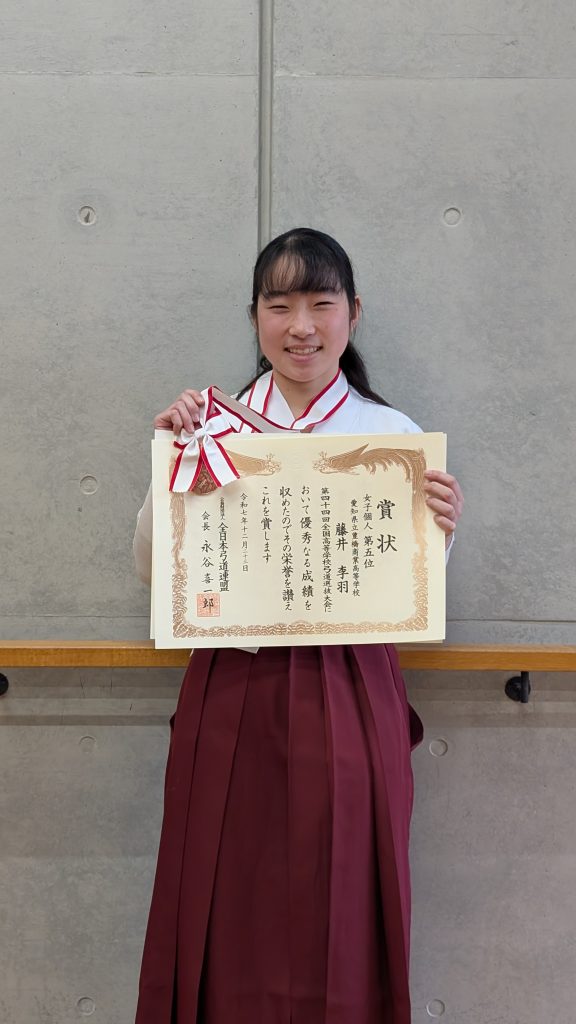 賞状
女子個人 第五位
愛知県立豊橋商業高等学校
藤井 李羽
第四十四回全国高等学校弓道選抜大会に
おいて優秀なる成績を
収めたのでその栄誉を讃え
これを賞します
令和七年十二月二十三日
公益財団法人 全日本弓道連盟
会長 永谷喜一郎